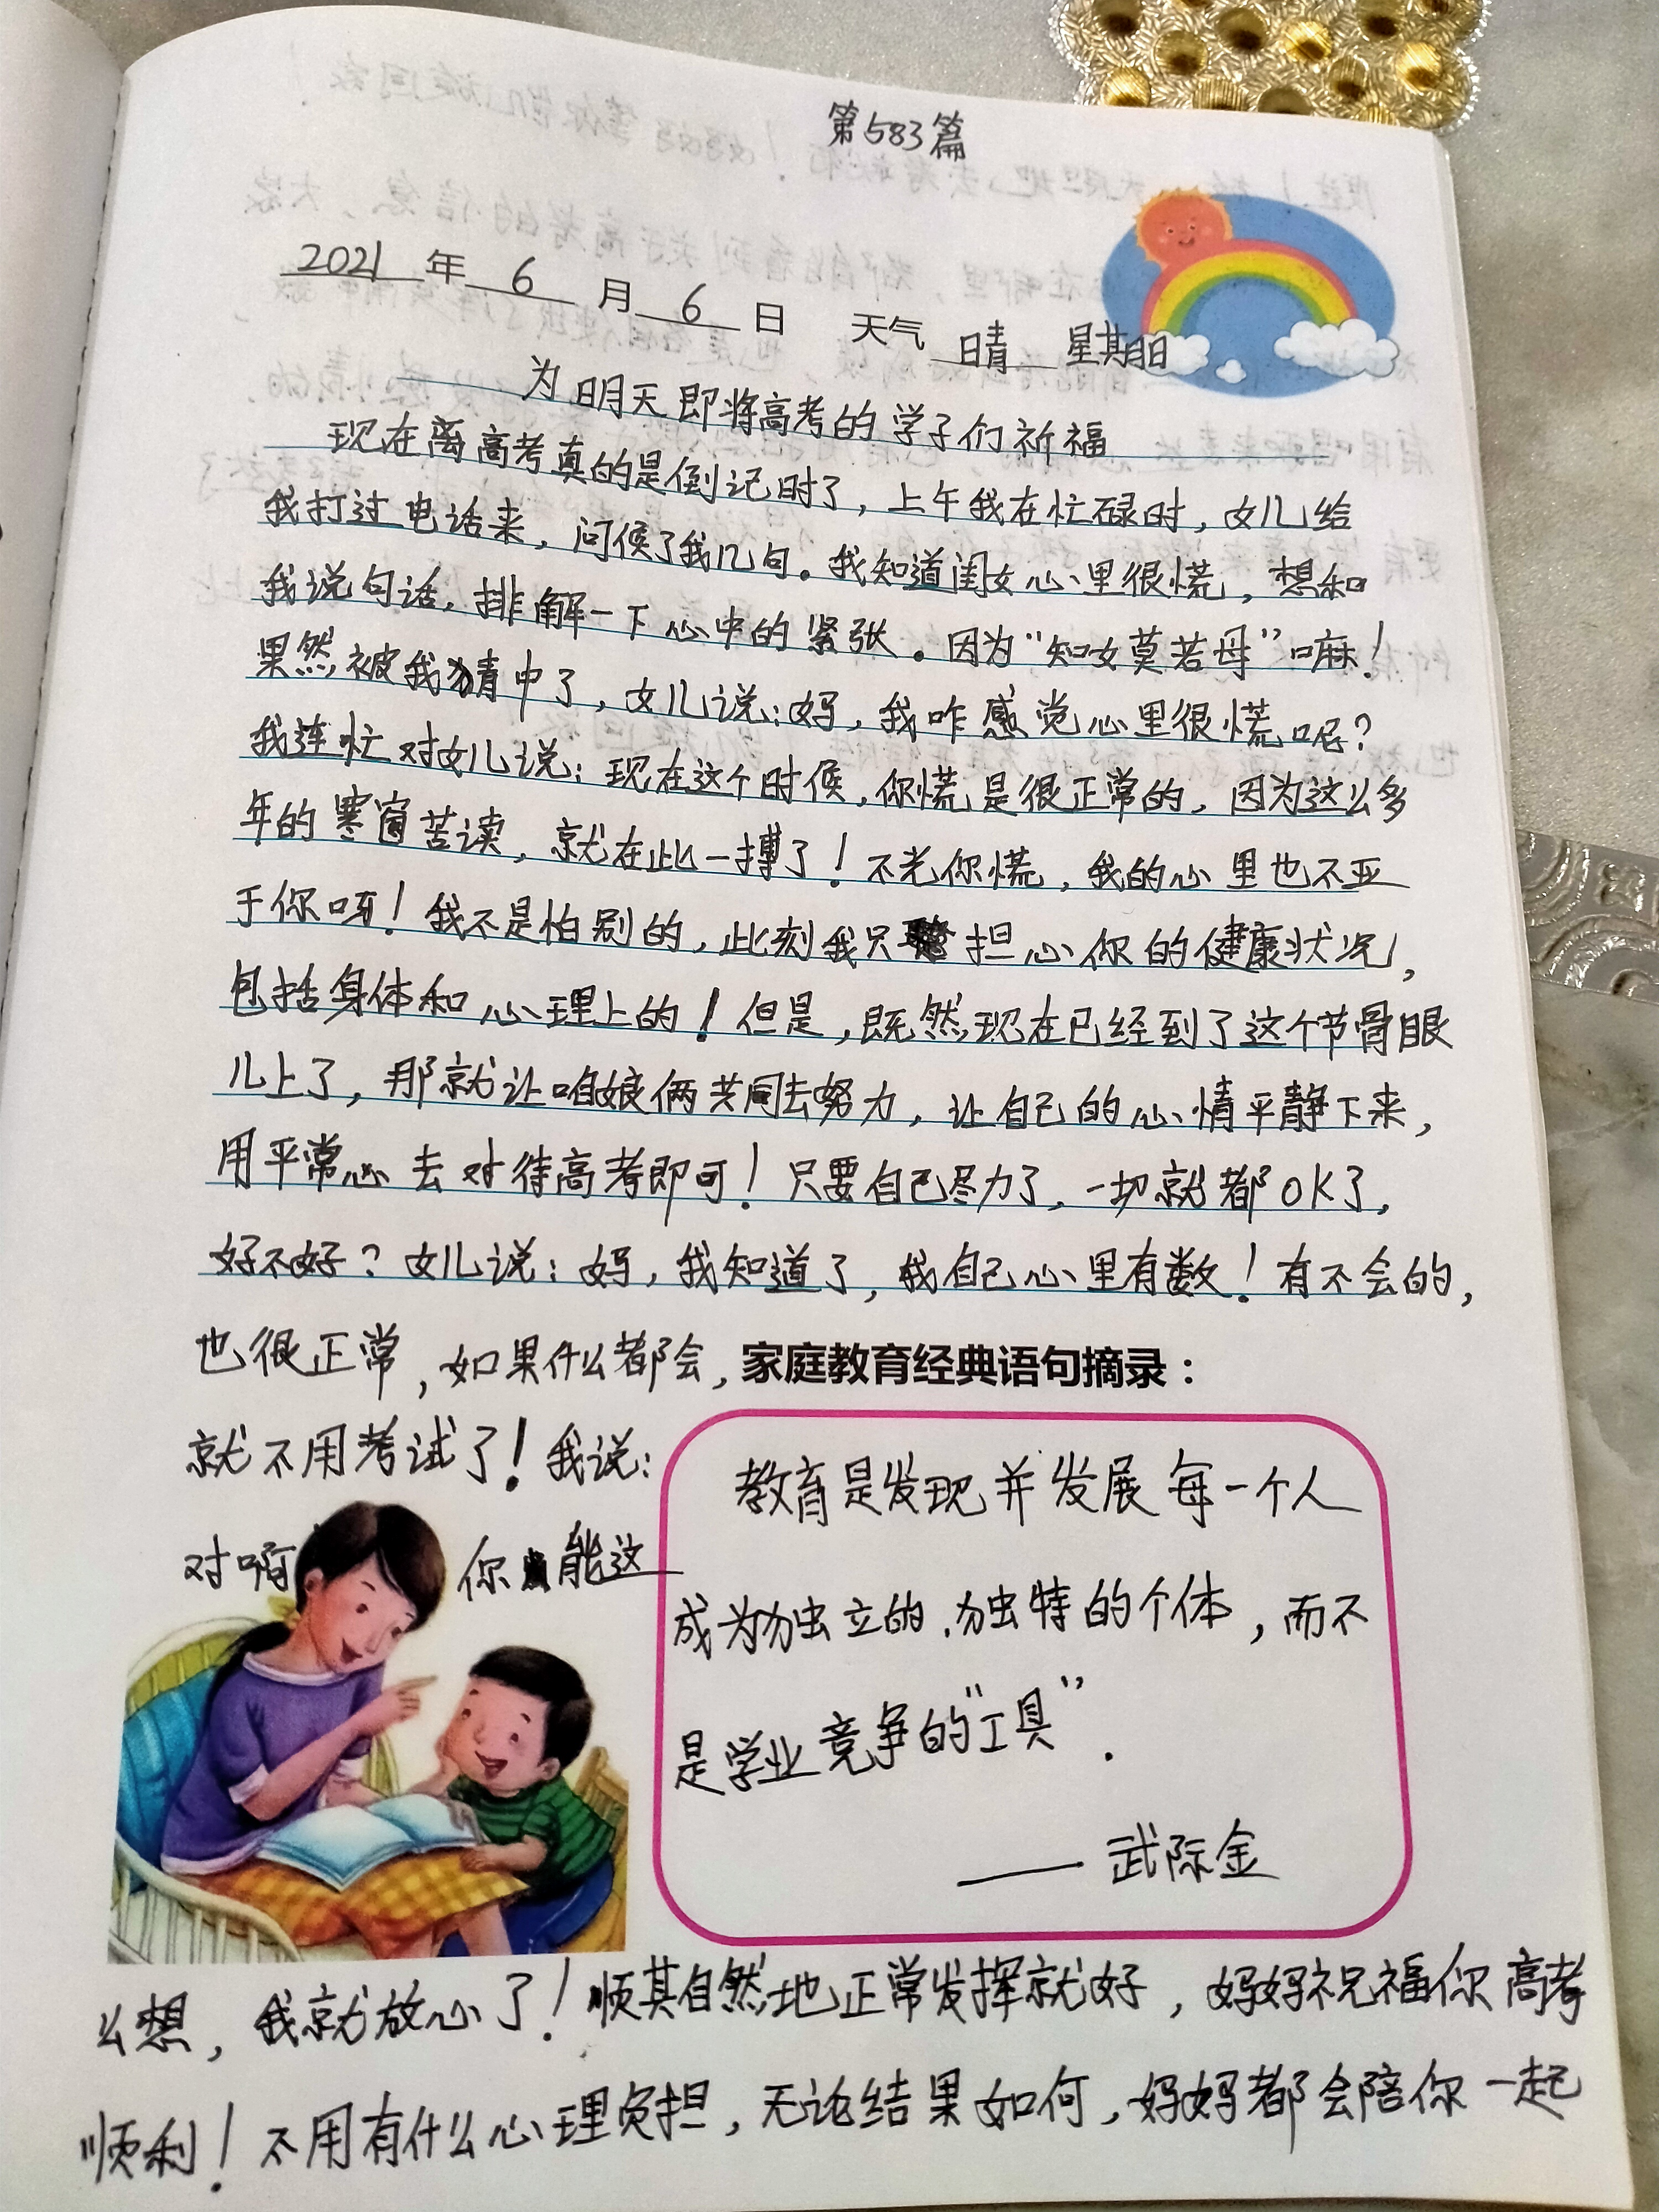 第583篇
2021年6月6日 天气 晴 星期日
为明天即将高考的学子们祈福
现在离高考真的是倒记时了,上午我在忙碌时,女儿给
我打过电话来,问候了我几句。我知道闺女心里很慌,想和
我说句话,排解一下心中的紧张。因为“知女莫若母”嘛!
果然被我猜中了,女儿说:妈,我咋感觉心里很慌呢?
我连忙对女儿说:现在这个时候,你慌是很正常的,因为这么多
年的寒窗苦读,就在此一搏了!不光你慌,我的心里也不亚
于你呀!我不是怕别的,此刻我只担心你的健康状况,
包括身体和心理上的!但是,既然现在已经到了这个节骨眼
儿上了,那就让咱娘俩共同去努力,让自己的心情平静下来,
用平常心去对待高考即可!只要自己尽力了,一切就都OK了,
好不好?女儿说:妈,我知道了,我自己心里有数!有不会的,
也很正常,如果什么都会,
就不用考试了!我说:
对啊 你能这
家庭教育经典语句摘录:
教育是发现并发展每一个人
成为独立的、独特的个体,而不
是学业竞争的“工具”.
——武际金
么想,我就放心了!顺其自然地正常发挥就好,妈妈祝福你高考
顺利!不用有什么心理负担,无论结果如何,妈妈都会陪你一起